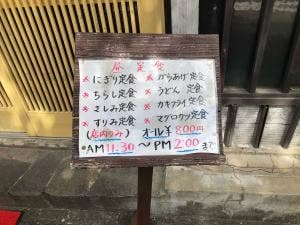 昼定食
※にぎり定食 ※からあげ定食
※ちらし定食 ※うどん 定食
※さしみ定食 ※カキフライ定食
※すりみ定食 ※マグロカツ定食
(店内のみ) オール¥800円
*AM11.30〜PM2:00まで